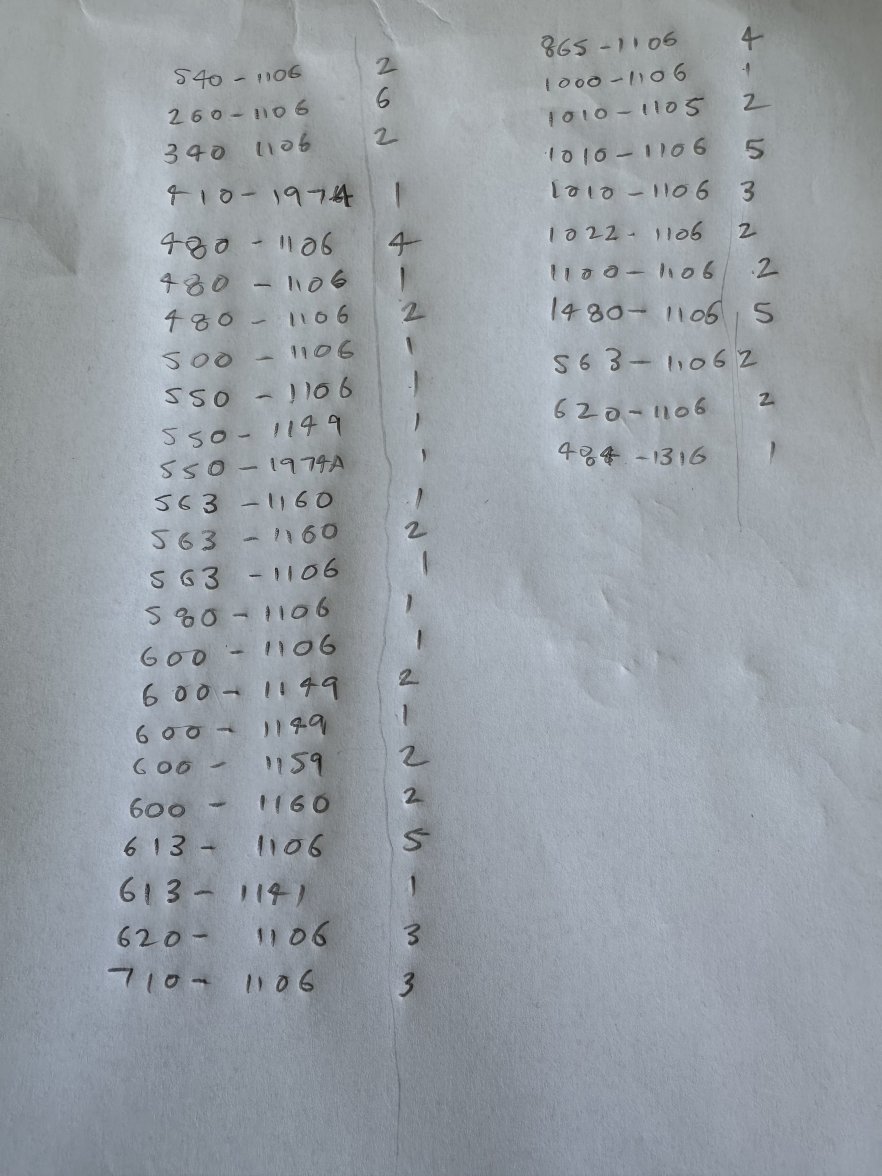 540-1106 2
260-1106 6
340 1106 2
410-1974 1
480-1106 4
480-1106 1
480-1106 2
500-1106 1
550-1106 1
550-1149 1
550-1974A 1
563-1160 1
563-1160 2
563-1106 1
580-1106 1
600-1106 1
600-1149 2
600-1149 1
600-1159 2
600-1160 2
613-1106 5
613-1141 1
620-1106 3
710-1106 3
865-1106 4
1000-1106 1
1010-1105 2
1010-1106 5
1010-1106 3
1022-1106 2
1100-1106 2
1480-1106 5
563-1106 2
620-1106 2
484-1316 1